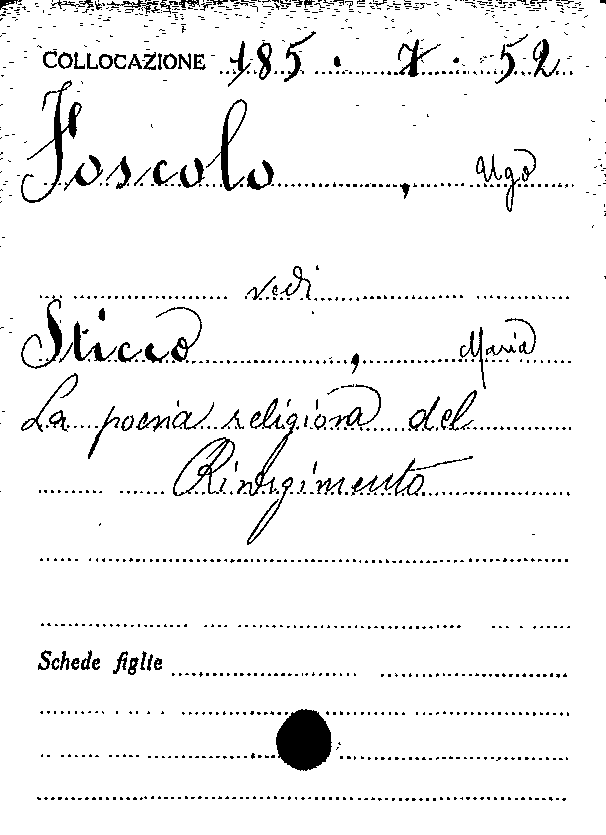 COLLOCAZIONE 185. 7. 52
Foscolo, Ugo
vedi
Sticco, Maria
La poesia religiosa del
Risorgimento
Schede figlie